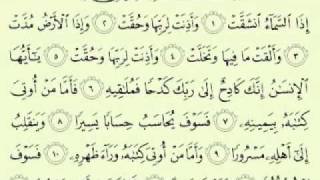 إِذَا ٱلسَّمَآءُ ٱنشَقَّتْ ١ وَأَذِنَتْ لِرَبِّهَا وَحُقَّتْ ٢ وَإِذَا ٱلْأَرْضُ مُدَّتْ
٣ وَأَلْقَتْ مَا فِيهَا وَتَخَلَّتْ ٤ وَأَذِنَتْ لِرَبِّهَا وَحُقَّتْ ٥ يَٰٓأَيُّهَا
ٱلْإِنسَٰنُ إِنَّكَ كَادِحٌ إِلَىٰ رَبِّكَ كَدْحًا فَمُلَٰقِيهِ ٦ فَأَمَّا مَنْ أُوتِىَ
كِتَٰبَهُۥ بِيَمِينِهِۦ ٧ فَسَوْفَ يُحَاسَبُ حِسَابًا يَسِيرًا ٨ وَيَنقَلِبُ
إِلَىٰٓ أَهْلِهِۦ مَسْرُورًا ٩ وَأَمَّا مَنْ أُوتِىَ كِتَٰبَهُۥ وَرَآءَ ظَهْرِهِۦ ١٠ فَسَوْفَ